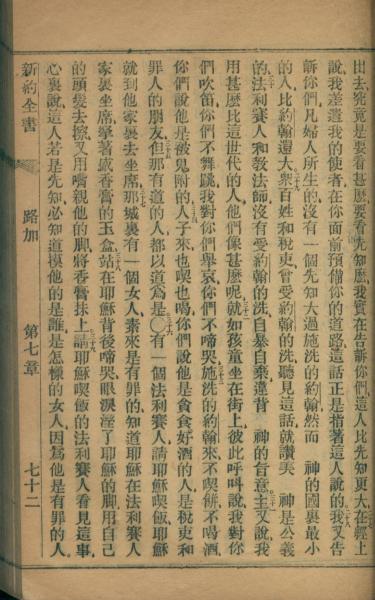 出去究竟是要看甚麼要看先知麼我實在告訴你們這人比先知更大在經上
說我差遣我的使者在你面前預備你的道路這話正是指著這人說的我又告
訴你們凡婦人所生的沒有一個先知大過施洗的約翰然而 神的國裏最小
的人比約翰還大衆百姓和稅吏曾受約翰的洗聽見這話就讚美 神是公義
的法利賽人和敎法師沒有受約翰的洗自暴自棄違背 神的旨意主又說我
用甚麼比這世代的人他們像甚麼呢就如孩童坐在街上彼此呼叫說我對你
們吹笛你們不舞跳我對你們舉哀你們不啼哭施洗的約翰來不喫餅不喝酒
你們說他是被鬼附的人子來也喫也喝你們說他是貪食好酒的人是稅吏和
罪人的朋友但那有道的人都以道爲是〇有一個法利賽人請耶穌喫飯耶穌
就到他家裏去坐席那城裏有一個女人素來是有罪的知道耶穌在法利賽人
家裏坐席拏著盛香膏的玉盒站在耶穌背後啼哭眼淚溼了耶穌的脚用自己
的頭髮去擦又用嘴親他的脚將香膏抹上請耶穌喫飯的法利賽人看見這事
心裏說這人若是先知必知道摸他的是誰是怎樣的女人因爲他是有罪的人
新約全書 路加 第七章 七十二